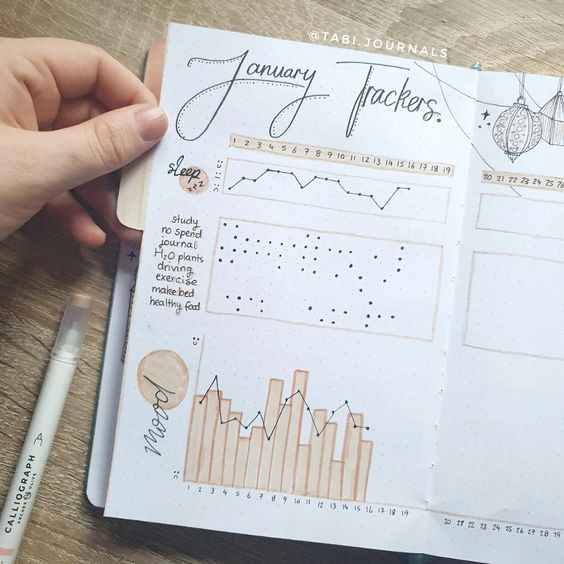 @TABI.JOURNALS
January Trackers.
1 2 3 4 5 6 7 8 9 10 11 12 13 14 15 16 17 18 19
20 21 22 23 24 25 26
sleep
zzz
study
no spend
journal
H₂O plants
driving
exercise
make bed
healthy food
mood
1 2 3 4 5 6 7 8 9 10 11 12 13 14 15 16 17 18 19
20 21 22 23 24 25 26
CALLIGRAPH
ARCHER & OLIVE